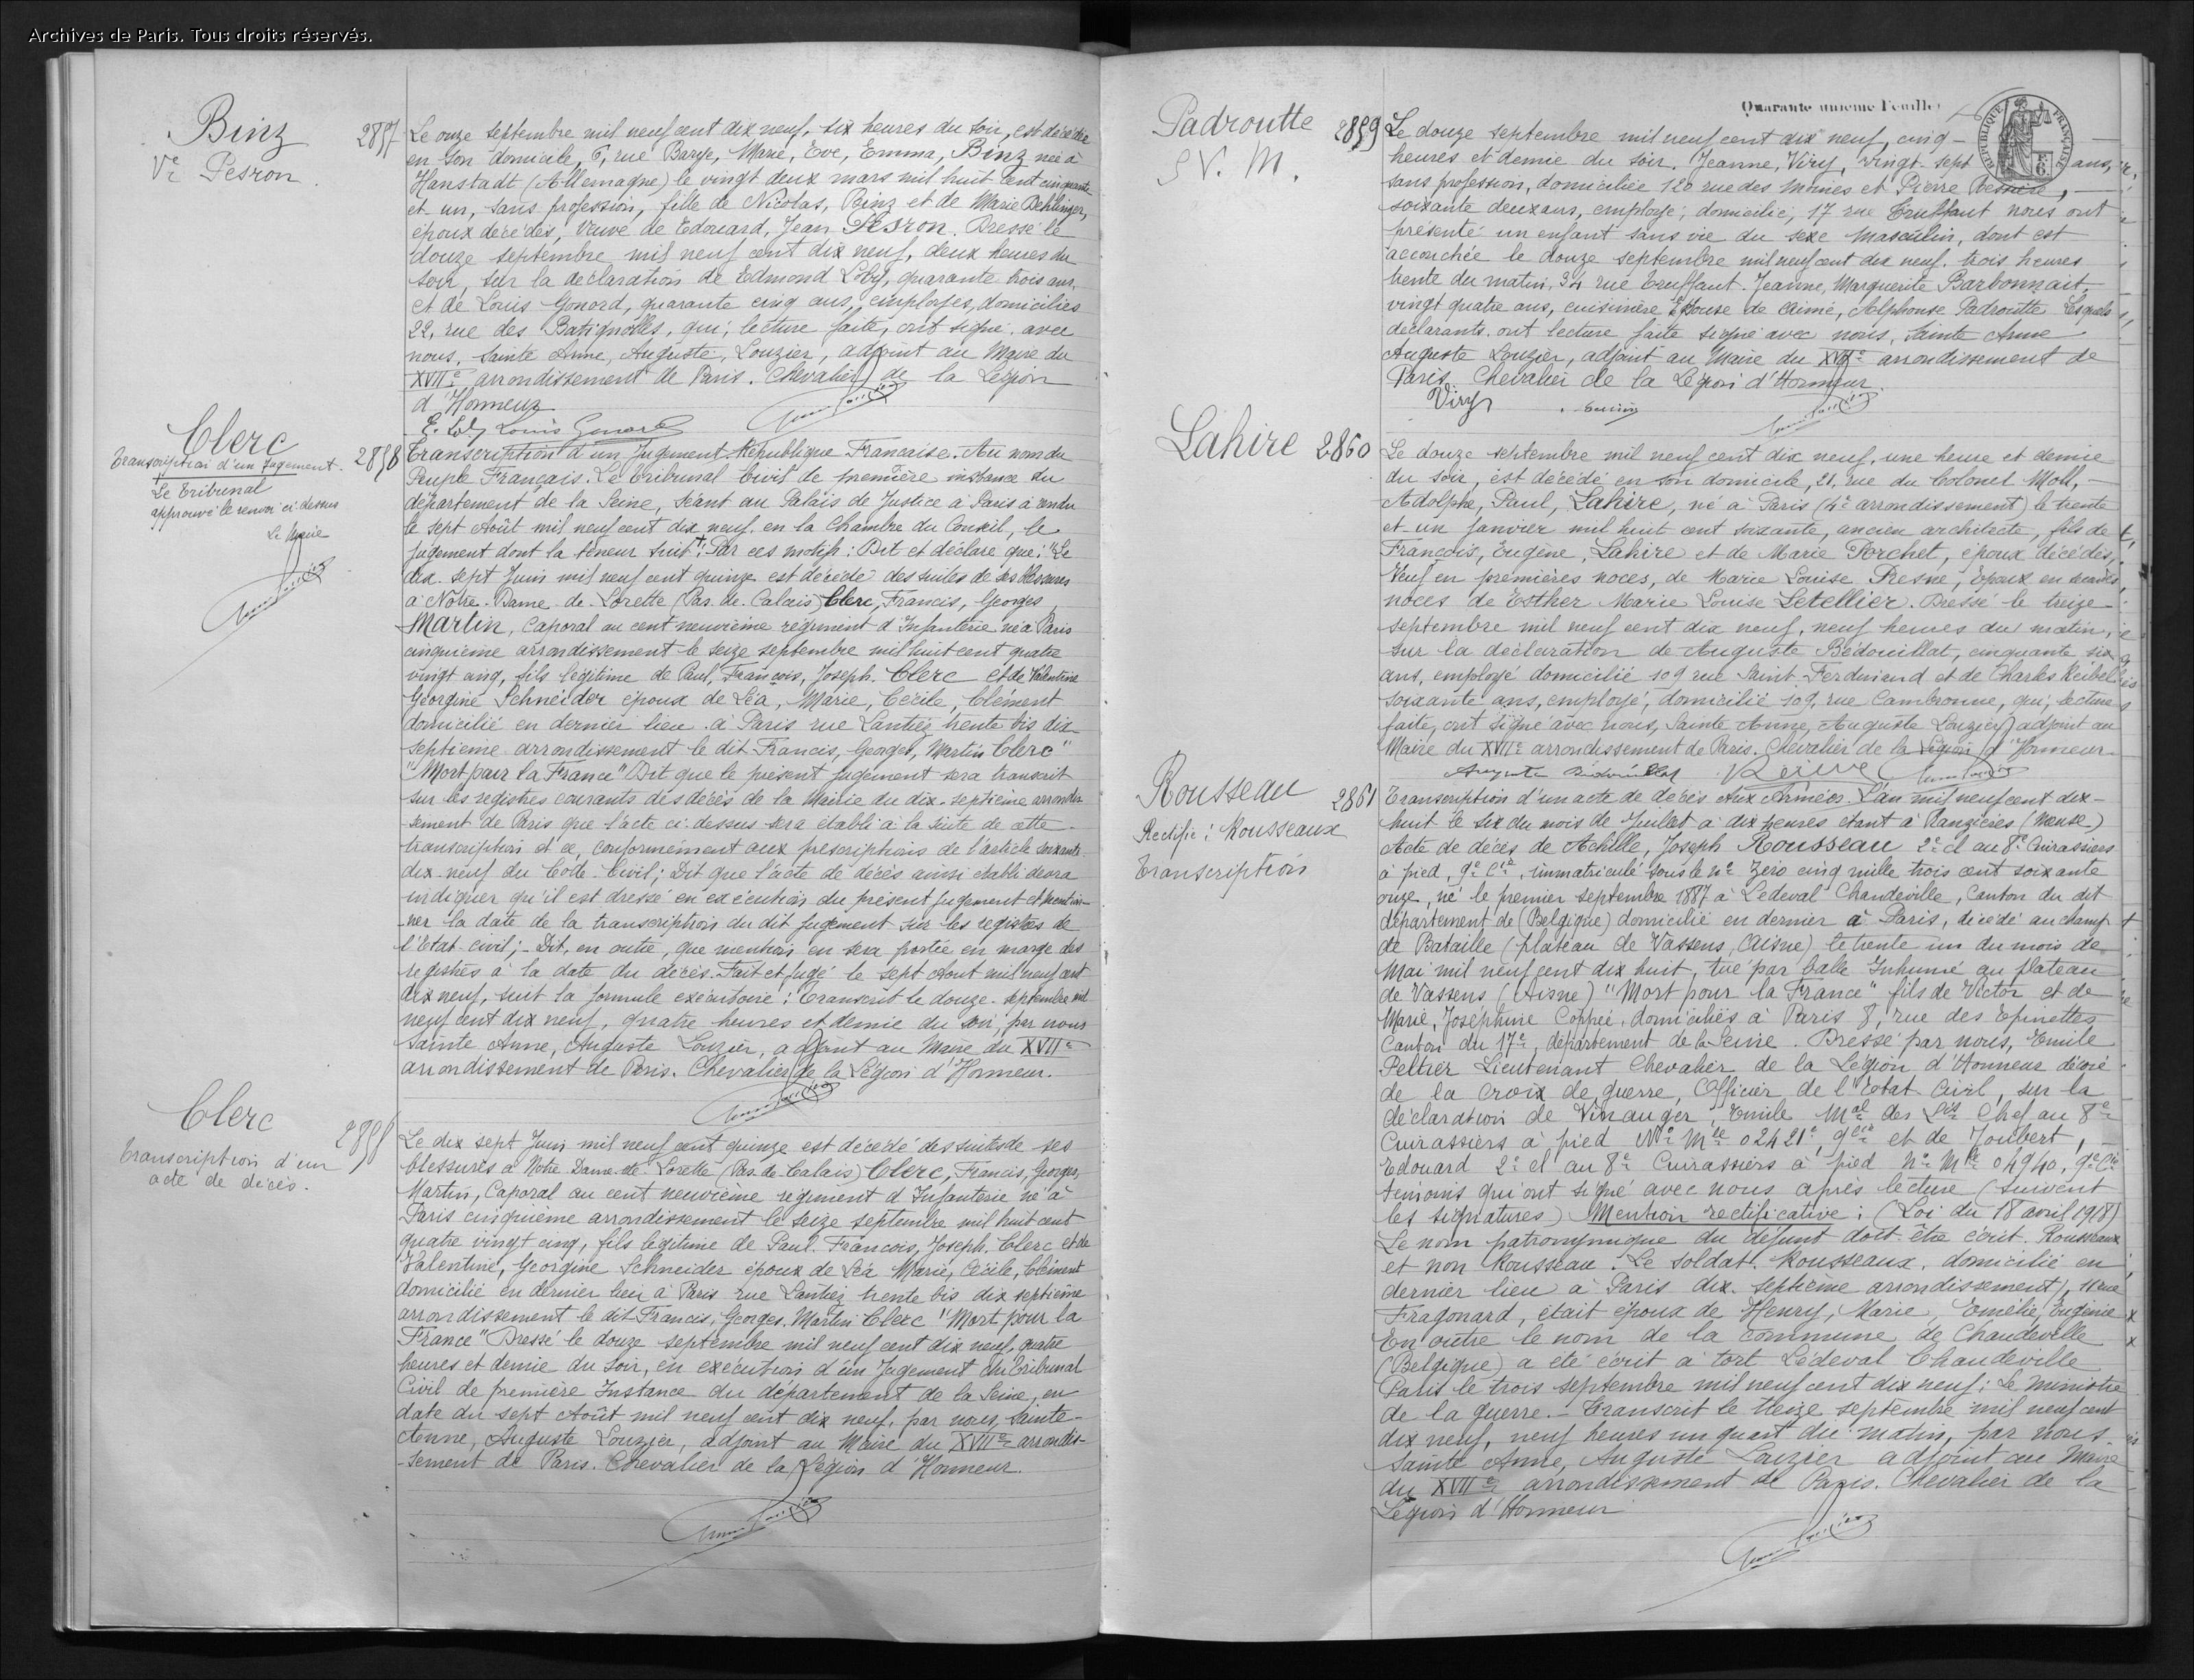 Archives de Paris. Tous droits réservés.
Binz
Ve Pesron
2857
Le onze septembre mil neuf cent dix neuf, six heures du soir, est décédée
en son domicile, 6, rue Barye, Marie, Eve, Emma, Binz née à
Hanstadt (Allemagne) le vingt deux mars mil huit cent cinquante
et un, sans profession, fille de Nicolas, Binz et de Marie Dehlinger,
époux décédés, veuve de Edouard, Jean Pesron. Dressé le
douze septembre mil neuf cent dix neuf, deux heures du
soir, sur la déclaration de Edmond Loby, quarante trois ans,
et de Louis Gonord, quarante cinq ans, employés, domiciliés
22, rue des Batignolles, qui, lecture faite, ont signé avec
nous, Sainte Anne, Auguste, Louzier, adjoint au Maire du
XVIIe arrondissement de Paris. Chevalier de la Légion
d'Honneur
E. Loby Louis Gonord
Clerc
Transcription d'un Jugement.
Le Tribunal
approuvé le renvoi ci dessus
Le Maire
2858
Transcription d'un Jugement. République Française. Au nom du
Peuple Français. Le Tribunal Civil de première instance du
département de la Seine, séant au Palais de Justice à Paris a rendu
le sept Août mil neuf cent dix neuf en la Chambre du Conseil, le
jugement dont la teneur suit: Par ces motifs: Dit et déclare que: "Le
dix. sept Juin mil neuf cent quinze est décédé des suites de ses blessures
à Notre-Dame-de-Lorette (Pas-de-Calais) Clerc, Francis, Georges,
Martin, Caporal au cent neuvième régiment d'Infanterie né à Paris
cinquième arrondissement le seize septembre mil huit cent quatre
vingt cinq, fils légitime de Paul, François, Joseph. Clerc et de Valentine
Georgine Schneider époux de Léa, Marie, Cécile, Clément
domicilié en dernier lieu à Paris rue Lantiez trente bis dix
septième arrondissement le dit Francis, Georges, Martin Clerc"
"Mort pour la France" Dit que le présent jugement sera transcrit
sur les registres courants des décès de la Mairie du dix-septième arrondis-
-sement de Paris que l'acte ci-dessus sera établi à la suite de cette
transcription et ce, conformément aux prescriptions de l'article soixante
dix-neuf du Code Civil; Dit que l'acte de décès ainsi établi devra
indiquer qu'il est dressé en exécution du présent jugement et mention-
-ner la date de la transcription du dit jugement sur les registres de
l'Etat civil; - Dit, en outre, que mention en sera portée en marge des
registres à la date du décès. Fait et jugé le sept Août mil neuf cent
dix neuf, suit la formule exécutoire: Transcrit le douze septembre mil
neuf cent dix neuf, quatre heures et demie du soir, par nous
Sainte Anne, Auguste Louzier, adjoint au Maire du XVIIe
arrondissement de Paris. Chevalier de la Légion d'Honneur.
Clerc
Transcription d'un
acte de décès.
Le dix sept Juin mil neuf cent quinze est décédé des suites de ses
blessures à Notre Dame-de-Lorette (Pas-de-Calais) Clerc, Francis, Georges,
Martin, Caporal au cent neuvième régiment d'Infanterie né à
Paris cinquième arrondissement le seize septembre mil huit cent
quatre vingt cinq, fils légitime de Paul. François, Joseph. Clerc et de
Valentine, Georgine Schneider époux de Léa Marie, Cécile, Clément
domicilié en dernier lieu à Paris rue Lantiez trente bis dix septième
arrondissement le dit Francis, Georges, Martin Clerc "Mort pour la
France" Dressé le douze septembre mil neuf cent dix neuf, quatre
heures et demie du soir, en exécution d'un Jugement du Tribunal
Civil de première Instance du département de la Seine, en
date du sept Août mil neuf cent dix neuf, par nous, Sainte-
Anne, Auguste Louzier, adjoint au Maire du XVIIe arrondis-
-sement de Paris. Chevalier de la Légion d'Honneur.
Quarante unième Feuille
RÉPUBLIQUE FRANÇAISE
Padroutte
S V. M.
2859
Le douze septembre mil neuf cent dix neuf, cinq -
heures et demie du soir. Jeanne, Viry, vingt-sept ans,
sans profession, domiciliée 120 rue des Moines et Pierre
soixante deux ans, employé, domicilié, 17 rue Truffaut nous ont
présenté un enfant sans vie du sexe masculin, dont est
accouchée le douze septembre mil neuf cent dix neuf. trois heures
trente du matin, 34 rue Truffaut. Jeanne, Marguerite Barbonnait,
vingt quatre ans, cuisinière, Epouse de Aimé, Alphonse Padroutte Lesquels
déclarants ont lecture faite signé avec nous, Sainte Anne
Auguste Louzier, adjoint au Maire du XVIIe arrondissement de
Paris. Chevalier de la Légion d'Honneur.
Viry
Lahire
2860
Le douze septembre mil neuf cent dix neuf, une heure et demie
du soir, est décédé en son domicile, 21, rue du Colonel Moll, -
Adolphe, Paul, Lahire, né à Paris (4e arrondissement) le trente
et un janvier mil huit cent soixante, ancien architecte, fils de
François, Eugène, Lahire et de Marie Porchet, époux décédés,
Veuf en premières noces, de Marie Louise Presne, Epoux en secondes
noces de Esther Marie Louise Letellier. Dressé le treize
septembre mil neuf cent dix neuf, neuf heures du matin,
sur la déclaration de Auguste Bédouillat, cinquante six
ans, employé domicilié 109 rue Saint-Ferdinand et de Charles Keibel
soixante ans, employé, domicilié 109, rue Cambronne, qui, lecture
faite, ont signé avec nous, Sainte Anne, Auguste Louzier adjoint au
Maire du XVIIe arrondissement de Paris. Chevalier de la Légion d'Honneur
Auguste Bédouillat
Rousseau
Rectifié: Rousseaux
Transcription
2861
Transcription d'un acte de décès aux Armées. L'an mil neuf cent dix-
huit le six du mois de Juillet à dix heures étant à Ranzières (Meuse)
Acte de décès de Achille, Joseph Rousseau 2e cl au 8e Cuirassiers
à pied, 9e Cie, immatriculé sous le no Zéro cinq mille trois cent soixante
onze, né le premier septembre 1887 à Ledeval Chaudeville, Canton du dit
département de (Belgique) domicilié en dernier à Paris, décédé au champ
de Bataille (plateau de Vassens, Aisne) le trente un du mois de
Mai mil neuf cent dix huit, tué par balle Inhumé au plateau
de Vassens (Aisne) "Mort pour la France" fils de Victor et de
Marie, Joséphine Coppée, domiciliés à Paris 8, rue des Epinettes
Canton du 17e, département de la Seine. Dressé par nous, Emile
Peltier Lieutenant Chevalier de la Légion d'Honneur décoré
de la Croix de guerre, Officier de l'Etat Civil, sur la
déclaration de Vinauger, Emile Mal des Lis Chef au 8e
Cuirassiers à pied No Mle 02421, 9e Cie et de Joubert,
Edouard 2e cl au 8e Cuirassiers à pied No Mle 04940, 9e Cie
témoins qui ont signé avec nous après lecture (suivent
les signatures) Mention rectificative: (Loi du 18 avril 1918)
Le nom patronymique du défunt doit être écrit. Rousseaux
et non Rousseau. Le soldat Rousseaux, domicilié en
dernier lieu à Paris dix-septième arrondissement), 11 rue
Fragonard, était époux de Henry, Marie, Emélie, Eugénie
En outre le nom de la commune de Chaudeville
(Belgique) a été écrit à tort Lédeval Chaudeville
Paris le trois septembre mil neuf cent dix neuf: Le ministre
de la guerre. - Transcrit le treize septembre mil neuf cent
dix neuf, neuf heures un quart du matin, par nous
Sainte Anne, Auguste Louzier adjoint au Maire
du XVIIe arrondissement de Paris. Chevalier de la
Légion d'Honneur